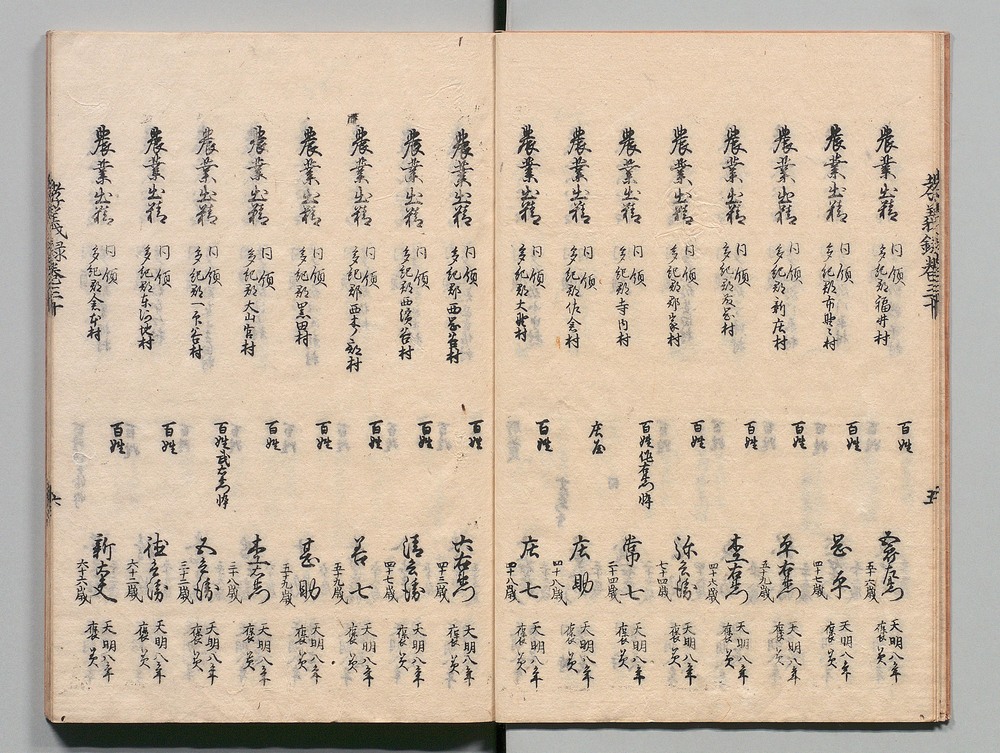 孝義録巻三十
五
農業出精 同領 多紀郡福井村 百姓 五十六歳 天明八年 褒美
農業出精 同領 多紀郡市野々村 百姓 忠平 四十七歳 天明八年 褒美
農業出精 同領 多紀郡新庄村 百姓 平右衛門 五十九歳 天明八年 褒美
農業出精 同領 多紀郡 百姓 杢右衛門 四十六歳 天明八年 褒美
農業出精 同領 多紀郡郡家村 百姓 弥兵衛 七十四歳 天明八年 褒美
農業出精 同領 多紀郡寺内村 百姓作右衛門悴 常七 二十四歳 天明八年 褒美
農業出精 同領 多紀郡佐倉村 庄屋 庄助 四十八歳 天明八年 褒美
農業出精 同領 多紀郡大野村 百姓 庄七 四十八歳 天明八年 褒美
農業出精 同領 多紀郡西岡屋村 百姓 六右衛門 四十三歳 天明八年 褒美
農業出精 同領 多紀郡西濱谷村 百姓 清兵衛 四十四歳 天明八年 褒美
農業出精 同領 多紀郡西木ノ部村 百姓 若七 五十九歳 天明八年 褒美
農業出精 同領 多紀郡黒田村 百姓 甚助 五十九歳 天明八年 褒美
農業出精 同領 多紀郡大山宮村 百姓 杢右衛門 三十八歳 天明八年 褒美
農業出精 同領 多紀郡一印谷村 百姓武右衛門悴 五兵衛 三十三歳 天明八年 褒美
農業出精 同領 多紀郡東河地村 百姓 徳兵衛 六十二歳 天明八年 褒美
農業出精 同領 多紀郡倉本村 百姓 新大夫 六十六歳 天明八年 褒美
孝義録巻三十
六